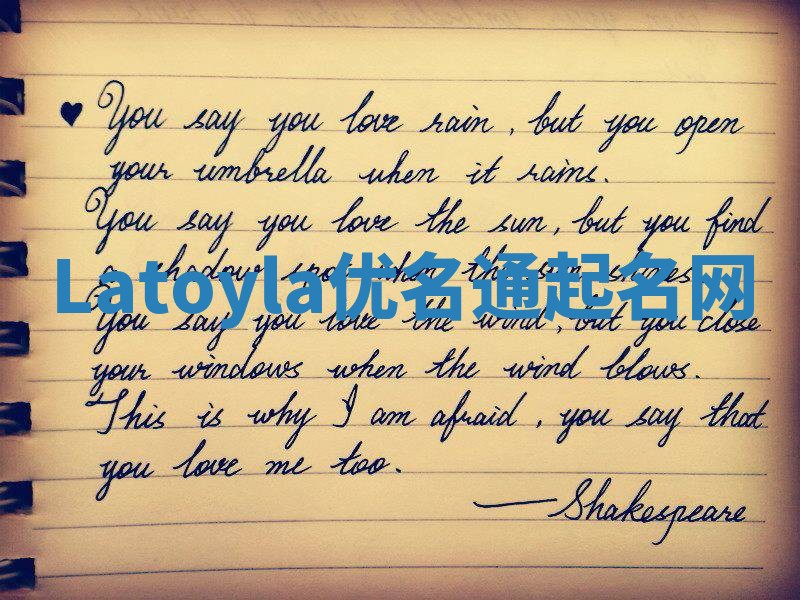 ♥ You say you love rain, but you open
your umbrella when it rains.
You say you love the sun, but you find
a shadow spot when the sun shines.
Latoyla优名通起名网
You say you love the wind, but you close
your windows when the wind blows.
This is why I am afraid, you say that
you love me too.
—Shakespeare